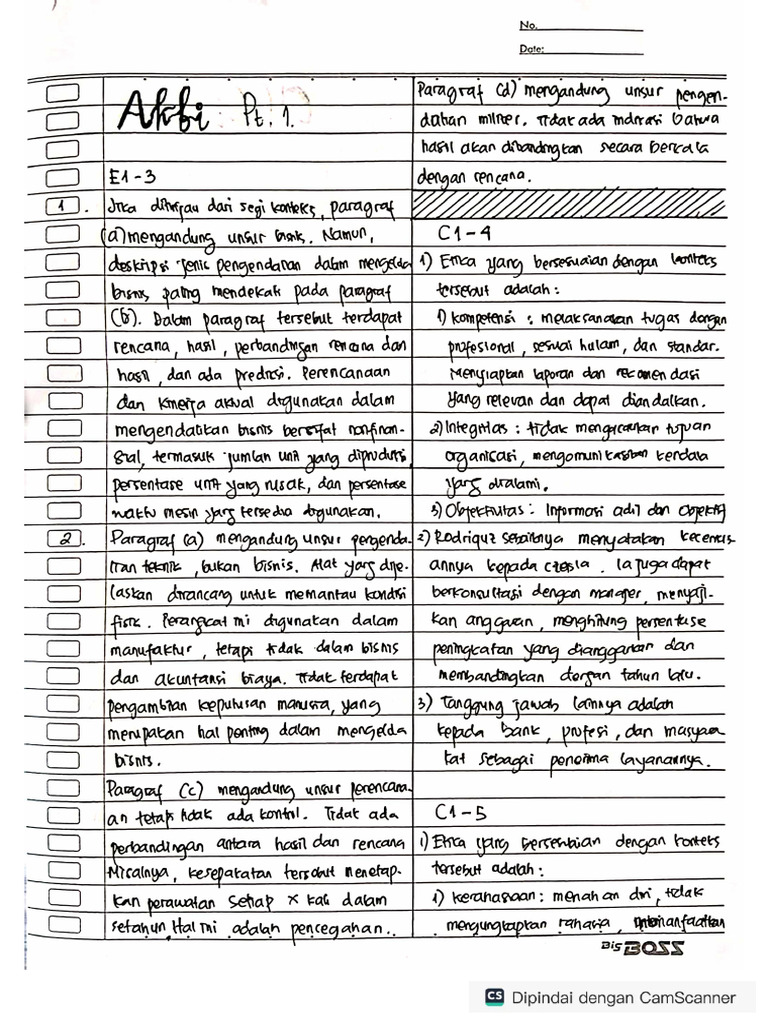 No.
Date:
Akbi Pt. 1.
E1-3
1. Jika ditinjau dari segi konteks, paragraf
(a) mengandung unsur bisnis. Namun,
deskripsi jenis pengendalian dalam mengelola
bisnis, paling mendekati pada paragraf
(b). Dalam paragraf tersebut terdapat
rencana, hasil, perbandingan rencana dan
hasil, dan ada prediksi. Perencanaan
dan kinerja aktual digunakan dalam
mengendalikan bisnis bersifat nonfinan-
sial, termasuk jumlah unit yang diproduksi,
persentase unit yang rusak, dan persentase
waktu mesin yang tersedia digunakan.
2. Paragraf (a) mengandung unsur pengenda-
lian teknik, bukan bisnis. Alat yang dije-
laskan dirancang untuk memantau kondisi
fisik. Perangkat ini digunakan dalam
manufaktur, tetapi tidak dalam bisnis
dan akuntansi biaya. Tidak terdapat
pengambilan keputusan manusia, yang
merupakan hal penting dalam mengelola
bisnis.
Paragraf (c) mengandung unsur perencana-
an tetapi tidak ada kontrol. Tidak ada
perbandingan antara hasil dan rencana
Misalnya, kesepakatan tersebut menetap-
kan perawatan setiap x kali dalam
setahun. Hal ini adalah pencegahan..
Paragraf (d) mengandung unsur pengen-
dalian Tidak ada indikasi bahwa
hasil akan dibandingkan secara berkala
dengan rencana.
C1-4
1) Etika yang bersesuaian dengan konteks
tersebut adalah:
1) Kompetensi : melaksanakan tugas dengan
profesional, sesuai hukum, dan standar.
Menyiapkan laporan dan rekomendasi
yang relevan dan dapat diandalkan.
2) Integritas : tidak mengacaukan tujuan
organisasi, mengomunikasikan kendala
yang dialami.
3) Objektivitas : Informasi adil dan objektif
2) Rodriquz sebaiknya menyatakan kecemas
annya kepada Ia juga dapat
berkonsultasi dengan manager, menyaji-
kan anggaran, menghitung persentase
peningkatan yang dianggarkan dan
membandingkan dengan tahun lalu.
3) Tanggung jawab lainnya adalah
kepada bank, profesi, dan masyara
kat sebagai penerima layanannya.
C1-5
1) Etika yang bersesuaian dengan konteks
tersebut adalah:
1) Kerahasiaan : menahan diri, tidak
mengungkapkan rahasia,
Bis BOSS
CS Dipindai dengan CamScanner